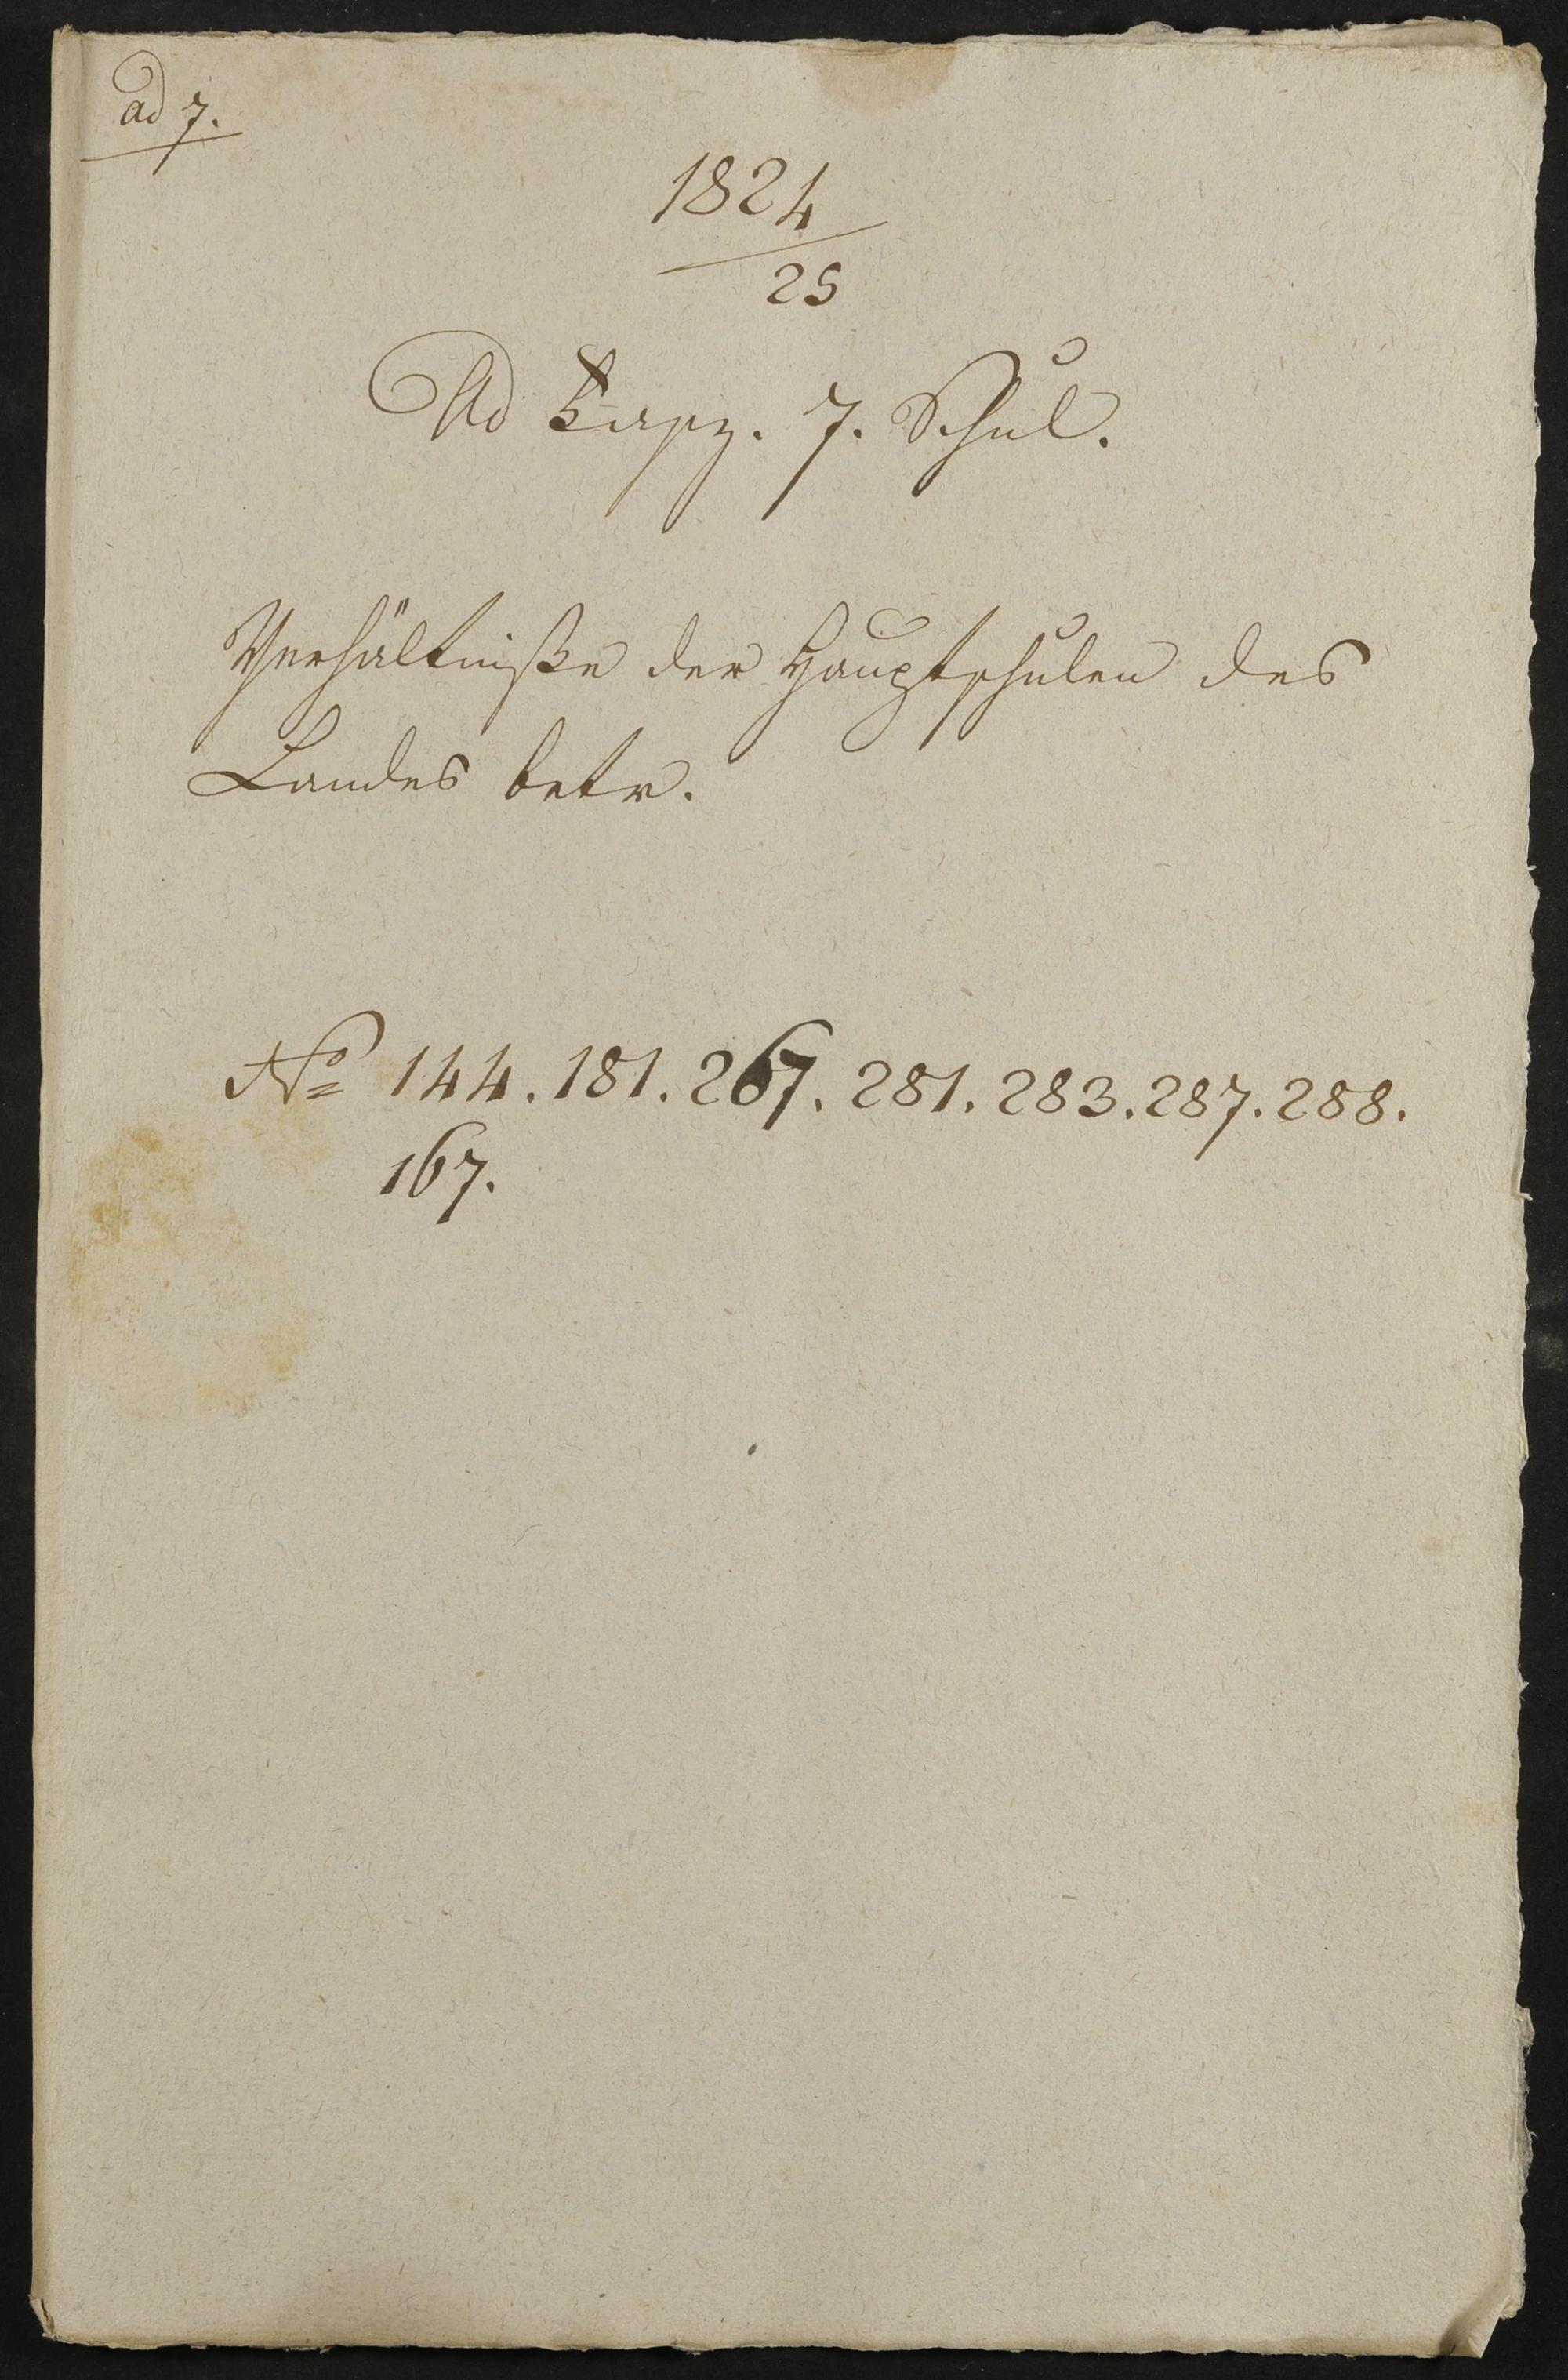 ad 7.
1824
25
Ad 7. Schul.
Verhältniße der Hauptschulen des
Landes betr.
No 144. 181. 267. 281. 283. 287. 288.
167.